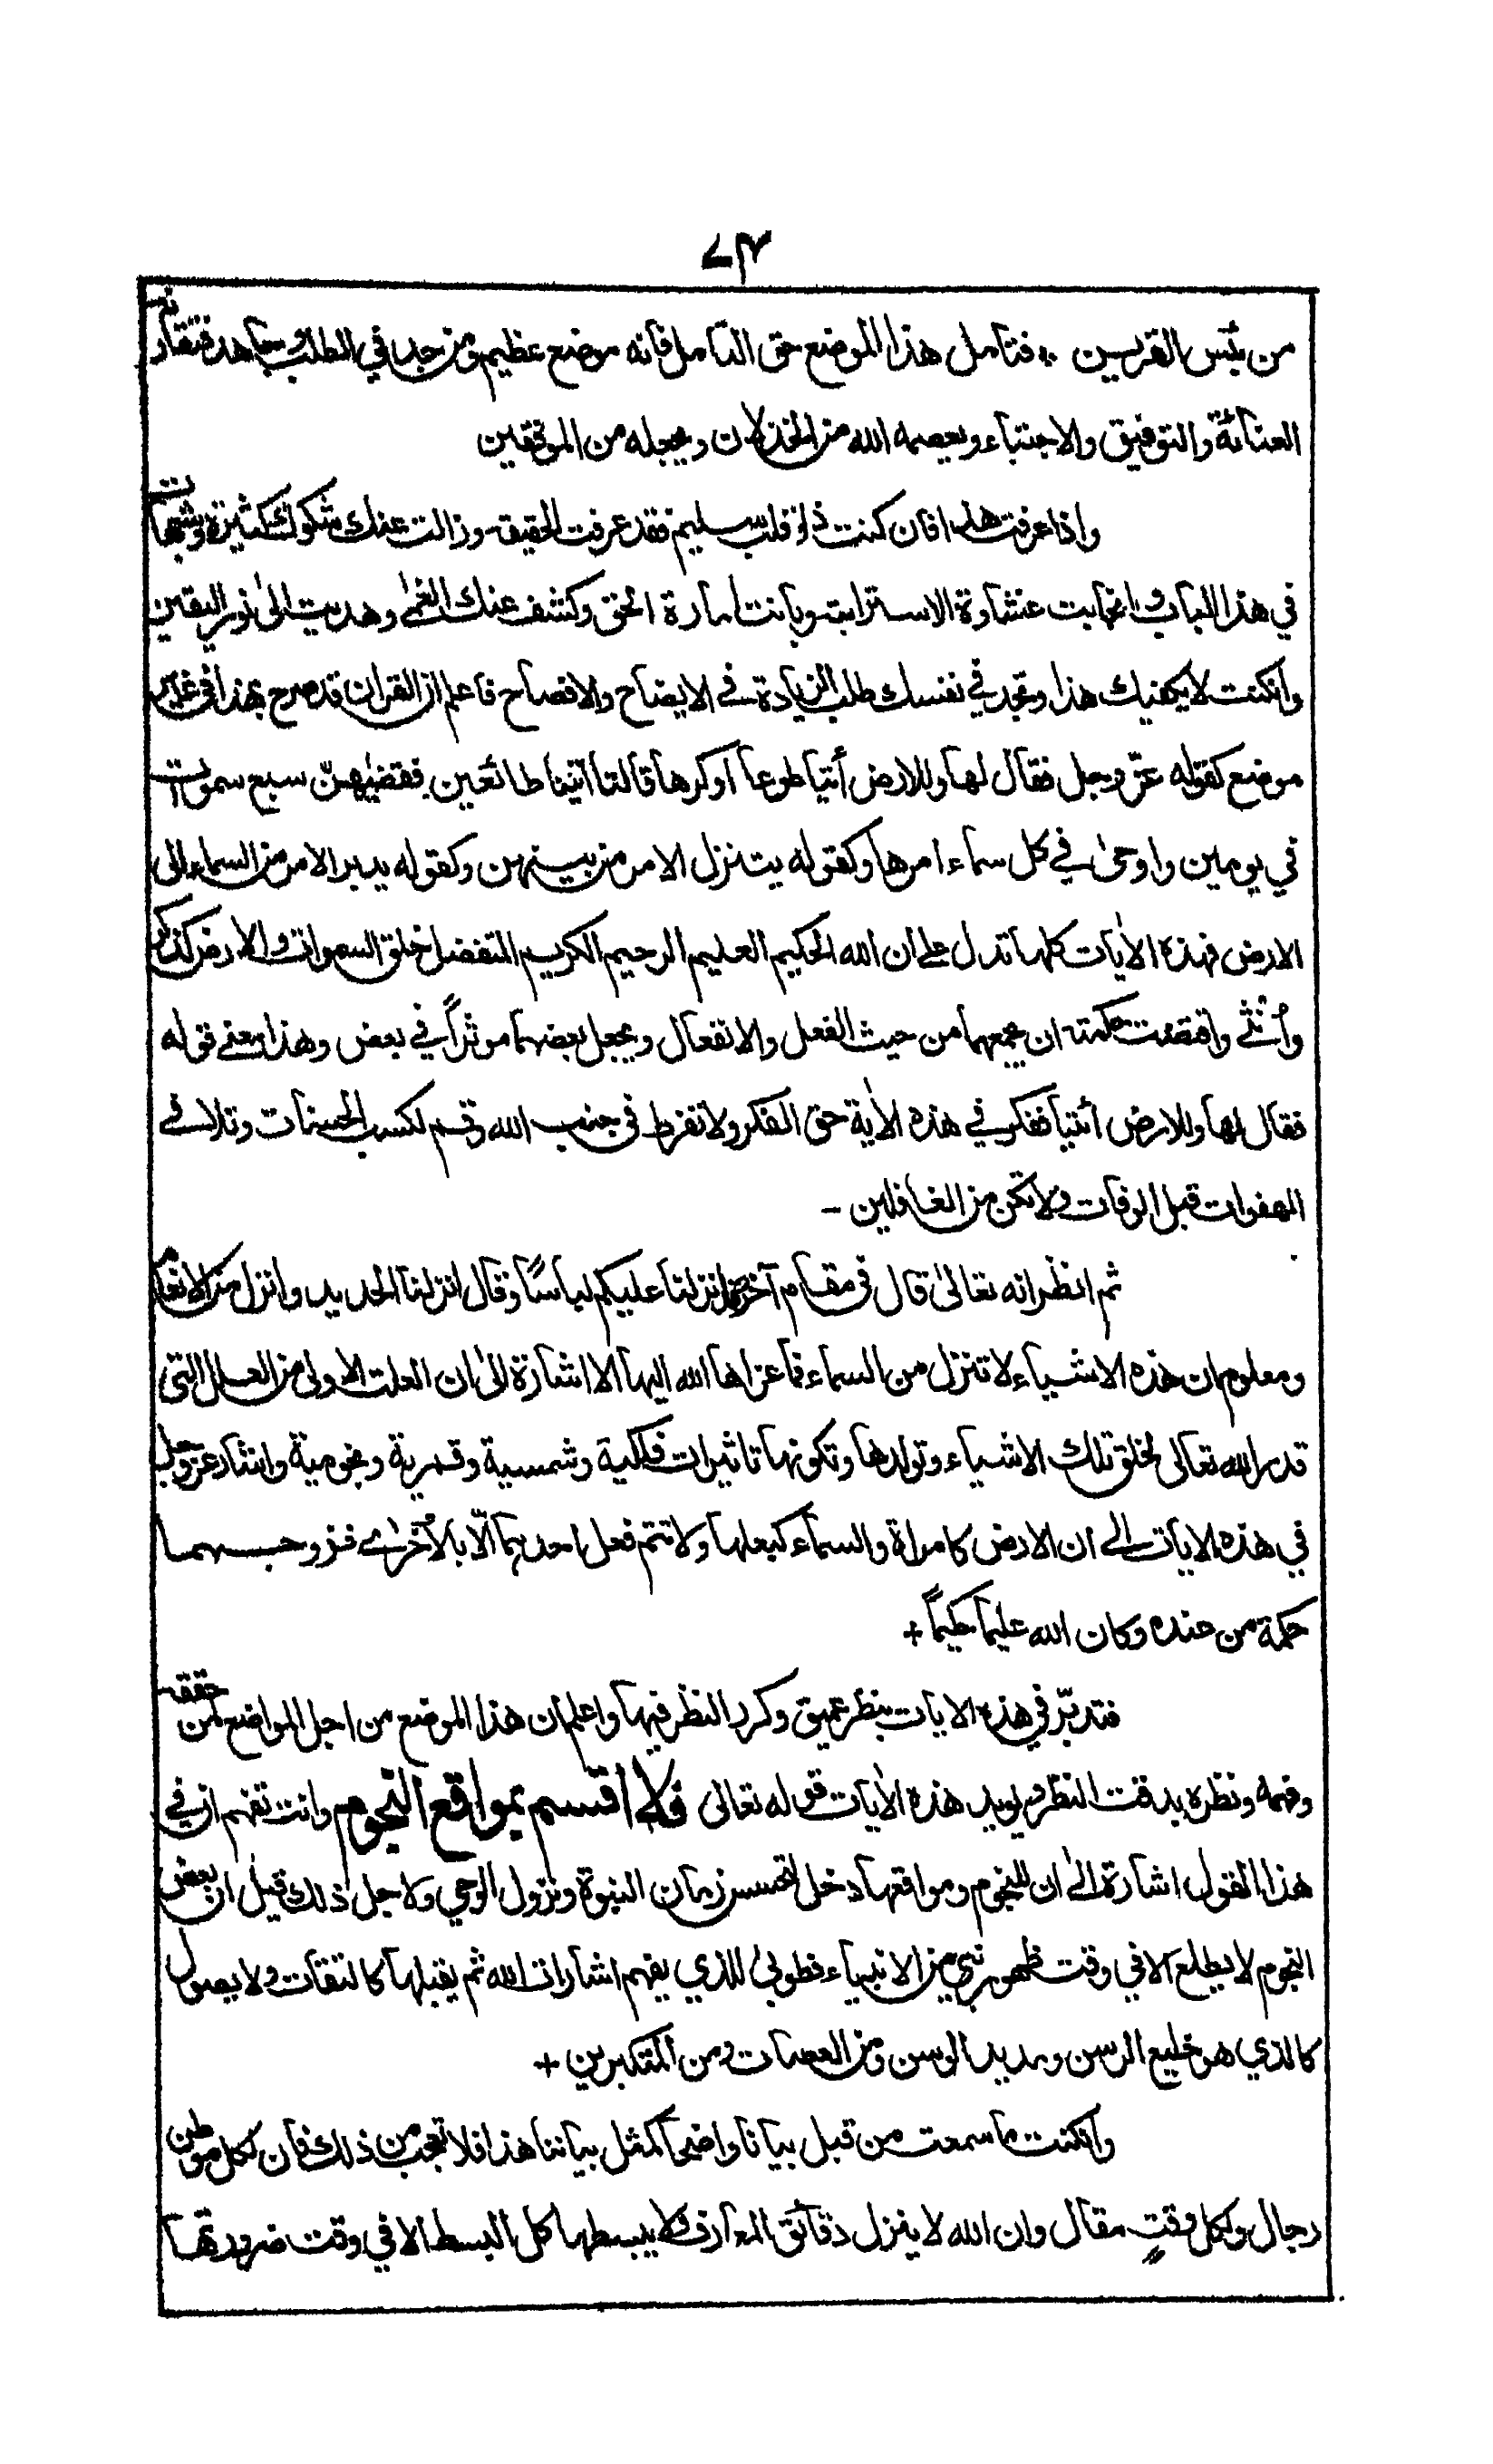 ٧٣
من بئس القرين ؞ فتأمل هذا الموضع حق التأمل فأنه موضع عظيم ومن جد في الطلب وجاهد فتقار
العنائة والتوفيق والاجتباء ويعصمه الله من الخذلان ويجعله من الموفقين
واذا عرفت هذا فان كنت ذا قلب سليم فقد عرفت الحقيقة وزالت عنك شكوك كثيرة وشبهات
في هذا الباب وانجابت غشاوة الاسترابة وبانت امارة الحق وكشف عنك الغمى وهديت الى نور اليقين
وانكنت لا يكفيك هذا وتجد في نفسك طلب الزيادة في الايضاح والافصاح فاعلم ان القران قد صرح بهذا في غير
موضع كقوله عزّ وجل فقال لها وللارض أتيا طوعا اوكرها قالتا اتينا طائعين فقضٰهنّ سبع سموٰت
في يومين واوحىٰ في كل سماء امرها وكقوله يتنزل الامر من بينهن وكقوله يدبر الامر من السماء الى
الارض فهذه الاٰيات كلها تدل على ان الله الحكيم العليم الرحيم الكريم المتفضل خلق السموات والارض كذكر
وأُنثى واقتضت حكمته ان يجمعهما من حيث الفعل والانفعال ويجعل بعضهما موثراً في بعض وهذا معنى قوله
فقال لها وللارض أئتيا ففكر في هذه الاٰية حق الفكر ولا تفرط في جنب الله وقم لكسب الحسنات وتلافي
الهفوات قبل الوفات ولا تكن من الغافلين -
ثم انظر انه تعالىٰ قال في مقام آخر انزلنا عليكم لباسًا وقال انزلنا الحديد وانزل من الانعام
ومعلوم ان هذه الاشياء لا تنزل من السماء فما عزاها الله اليها الا اشارة الىٰ ان العلت الاولى من العلل التى
قدر الله تعالى لخلق تلك الاشياء وتولدها وتكونها تاثيرات فلكية وشمسية وقمرية ونجومية واشار عز وجل
في هذه الايات الى ان الارض كامراة والسماء كبعلها ولا تتم فعل احدهما الّا بالأُخرٰى فزوجهما
حكمة من عنده وكان الله عليمًا حكيماً +
فتدبّر في هذه الايات بنظر عميق وكرر النظر فيها واعلم ان هذا الموضع من اجل المواضع لمن حققه
وفهمه ونظره بدقت النظر ويويد هذه الاٰيات قوله تعالى فلا اقسم بمواقع النّجوم وانت تفهم ان في
هذا القول اشارة الىٰ ان للنجوم ومواقعها دخل لتحسس زمان النبوة ونزول الوحي ولاجل ذلك قيل ان بعض
النجوم لا يطلع الا في وقت ظهور نبي من الانبياء فطوبىٰ للذي يفهم اشارات الله ثم يقبلها كالثقات ولا يصول
كالذي هو خليع الرسن ومديد الوسن ومن العصات ومن المتكبرين +
وانكنت ما سمعت من قبل بيانا واضحاً كمثل بياننا هذا فلا تعجب من ذلك فان لكل موطن
رجال ولكل وقتٍ مقال وان الله لا ينزل دقائق المعارف ولا يبسطها كل البسط الا في وقت ضرورتها